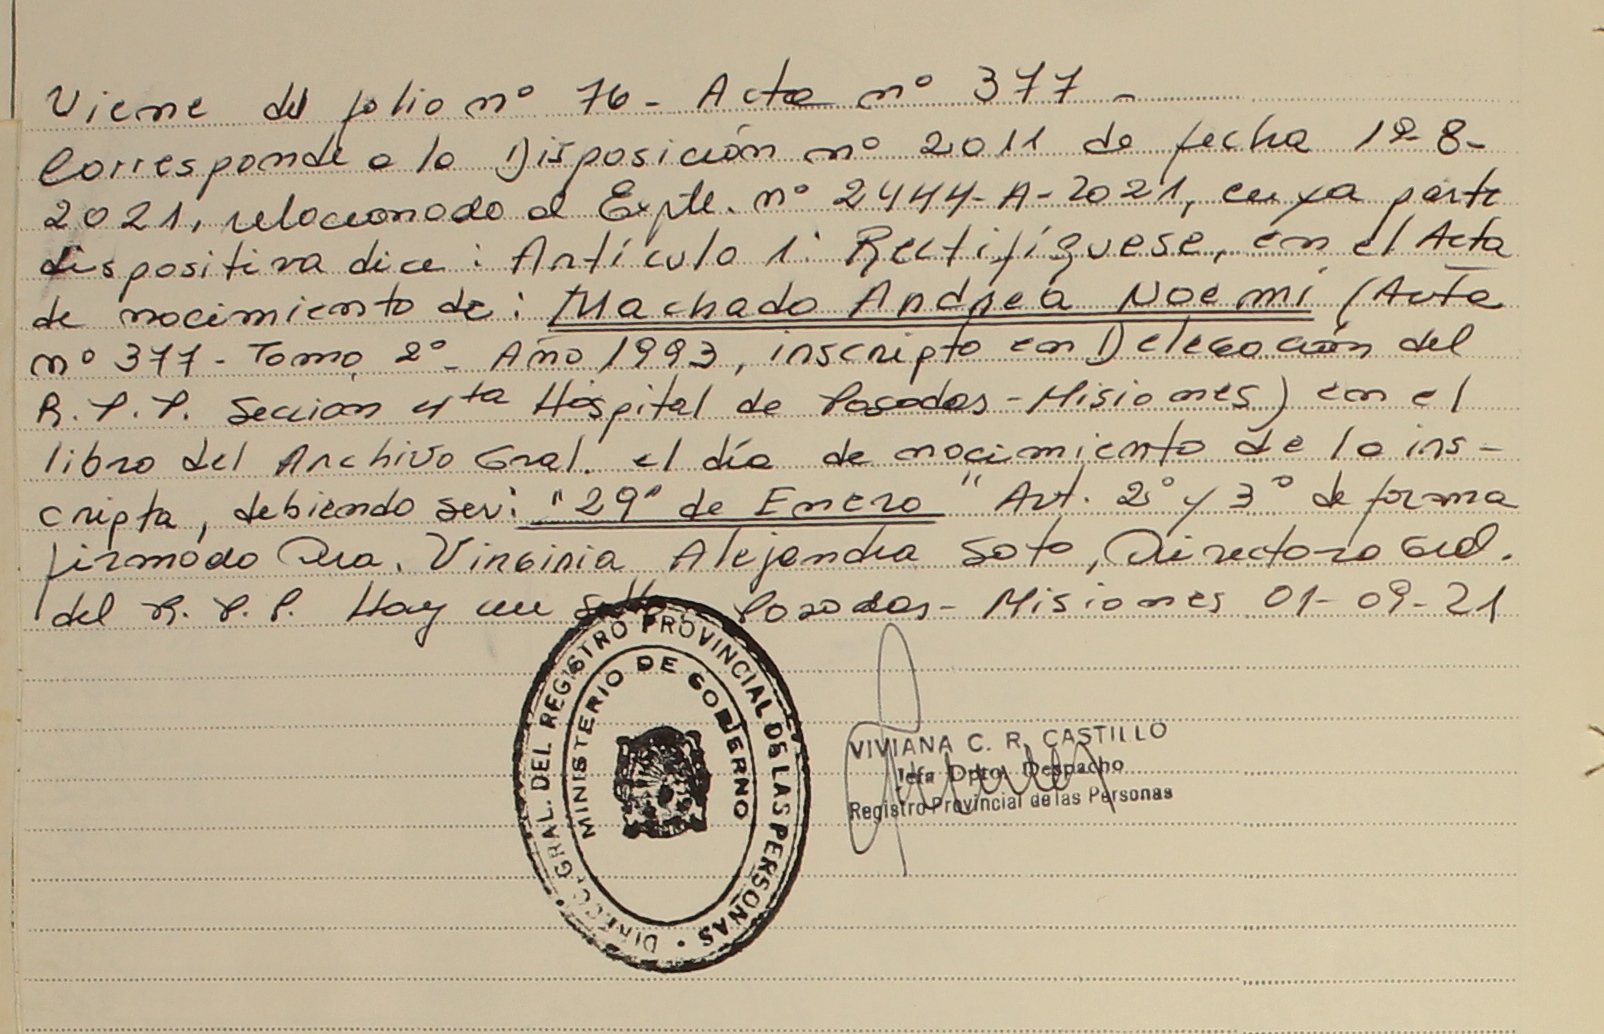 Viene del folio nº 76 - Acta nº 377 -
Corresponde a la Disposición nº 2011 de fecha 19-8-
2021, relacionado al Expte. nº 2444-A-2021, cuya parte
dispositiva dice: Artículo 1: Rectifíquese, en el Acta
de nacimiento de: Machado Andrea Noemí (Acta
nº 377 - Tomo 2º - Año 1993, inscripto en Delegación del
R.P.P. Sección 4ta Hospital de Posadas - Misiones) en el
libro del Archivo Gral. el día de nacimiento de la ins-
cripta, debiendo ser: "29" de Enero" Art. 2º y 3º de forma
firmado Dra. Virginia Alejandra Soto, Directora Gral.
del R.P.P. Hay un sello Posadas - Misiones 01-09-21
DIRECC. GRAL. DEL REGISTRO PROVINCIAL DE LAS PERSONAS
MINISTERIO DE GOBIERNO
VIVIANA C. R. CASTILLO
Jefa Dpto. Despacho
Registro Provincial de las Personas